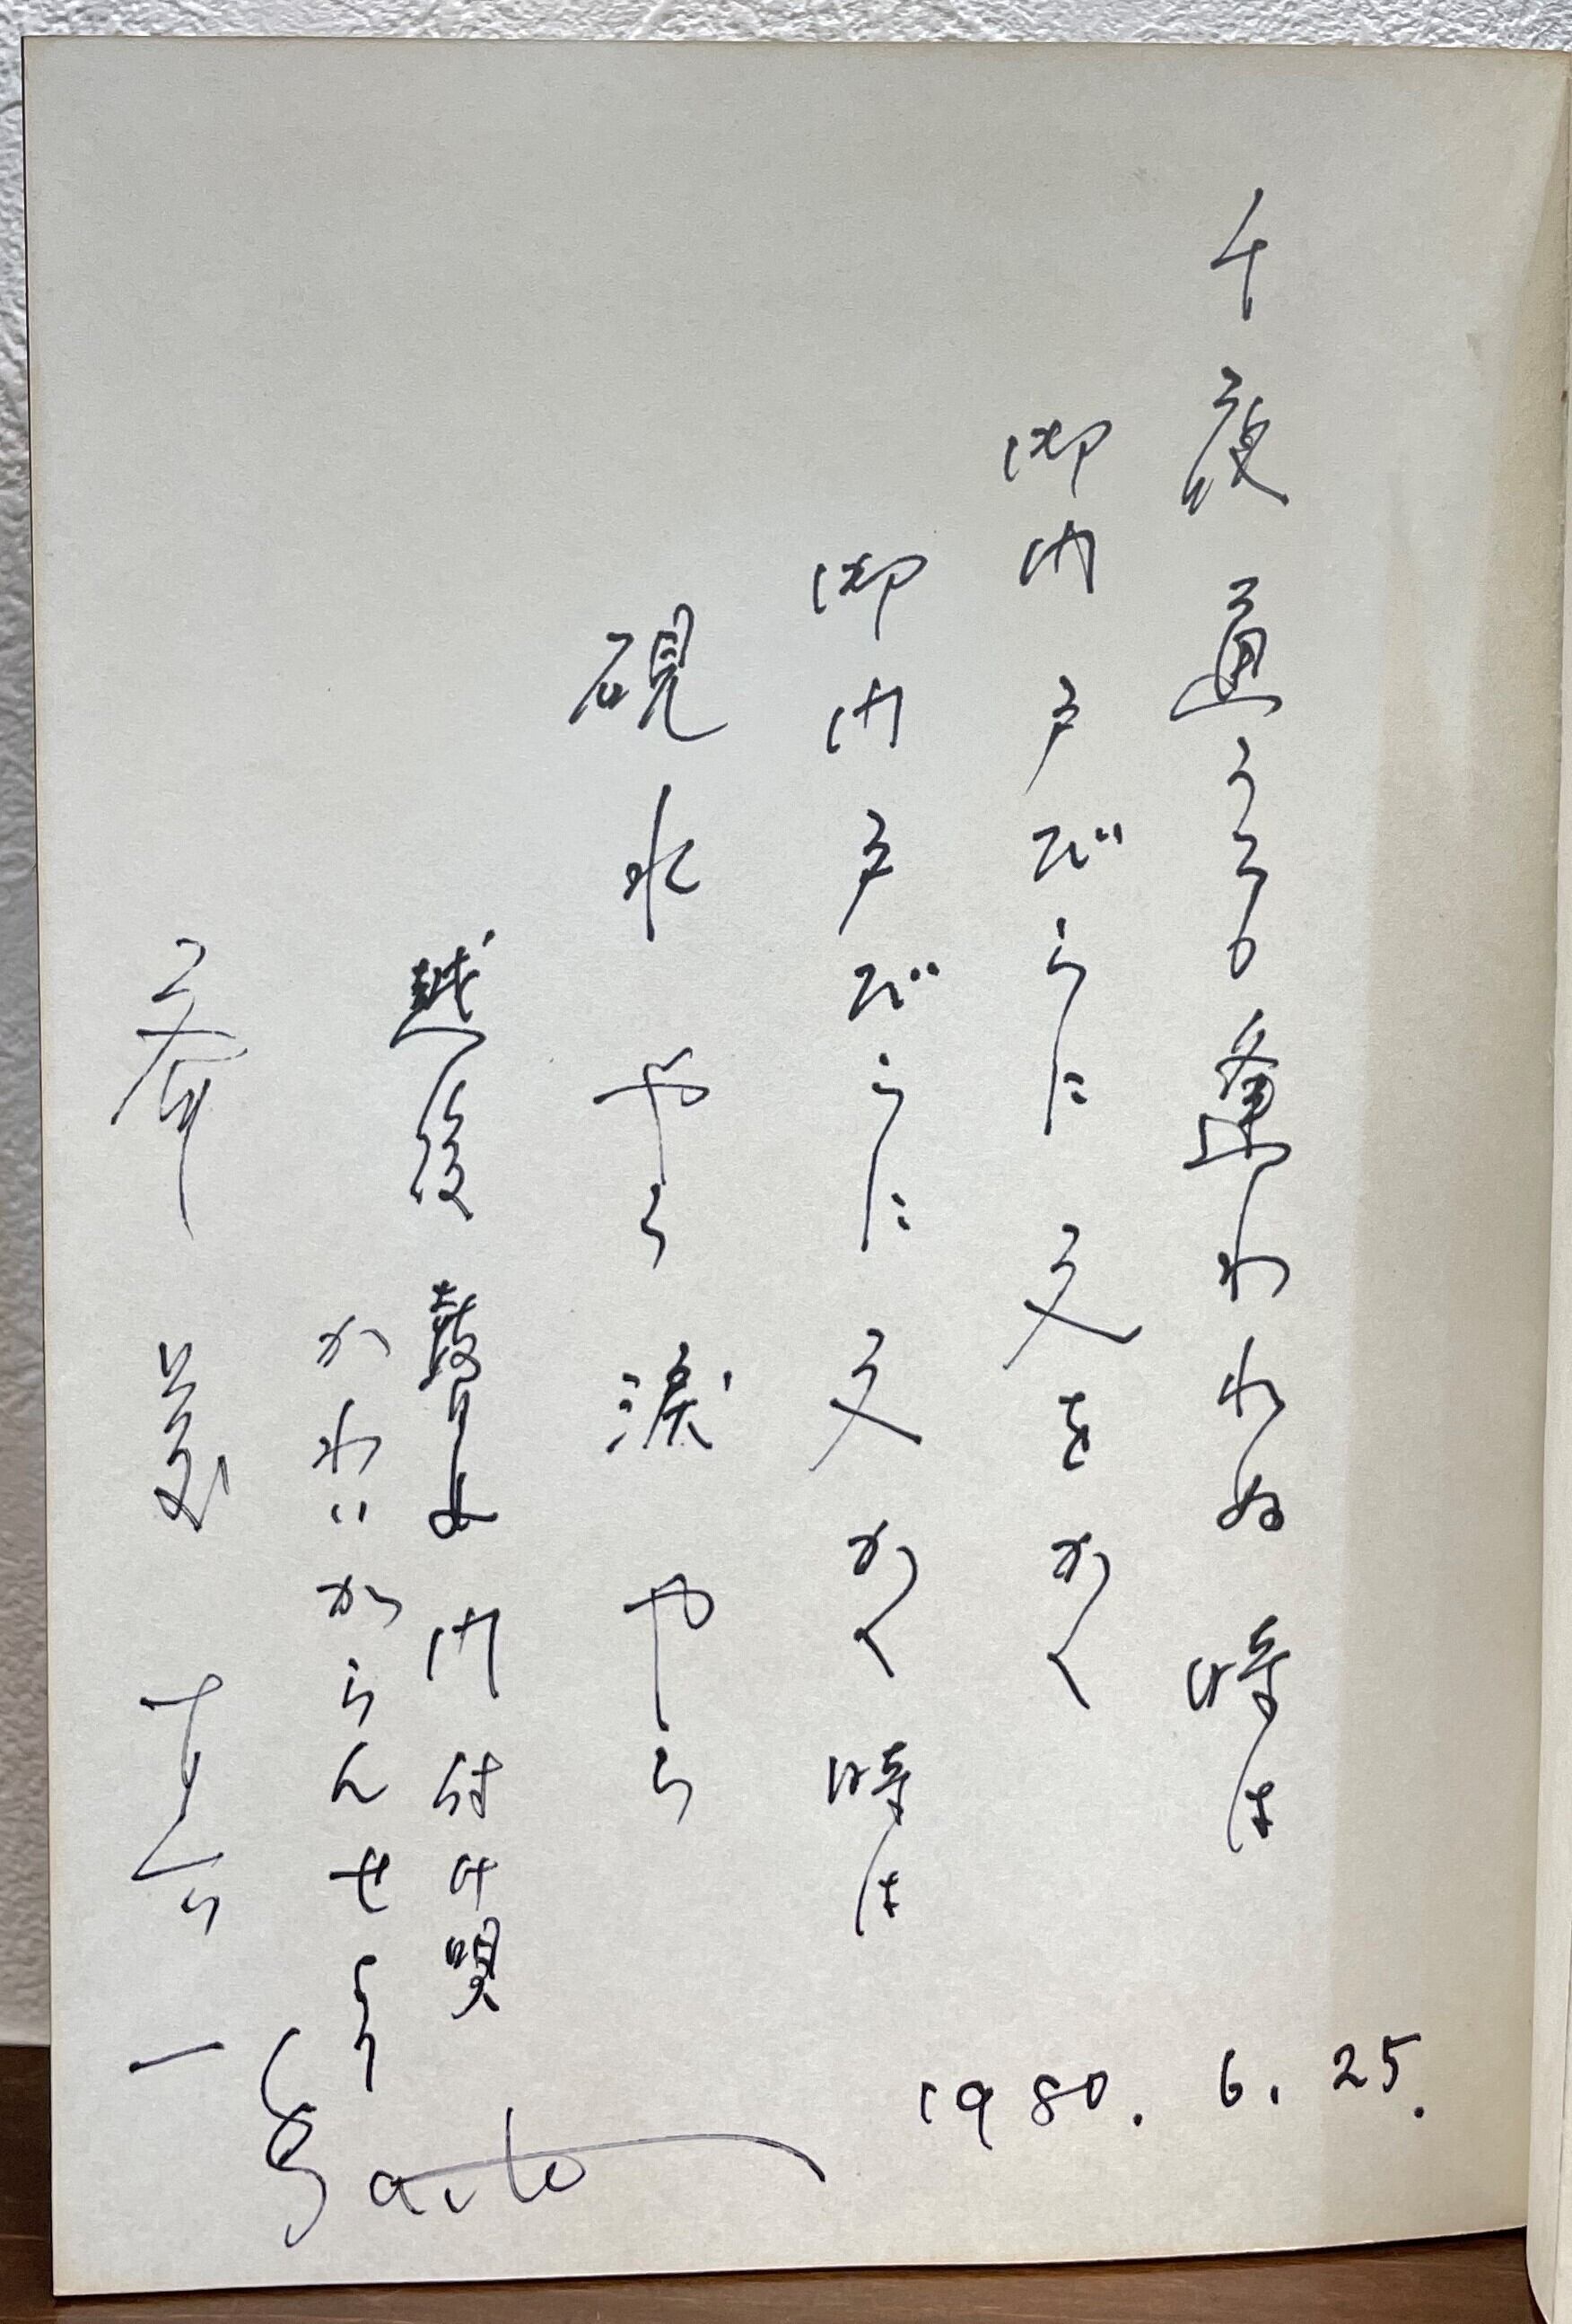 千度通うても逢われぬ時は
御門戸びらに文をかく
御門戸びらに文かく時は
硯水やら涙やら
越後瞽女門付け唄
かわいがらんせより
斎藤真一
Saito
1980. 6. 25.